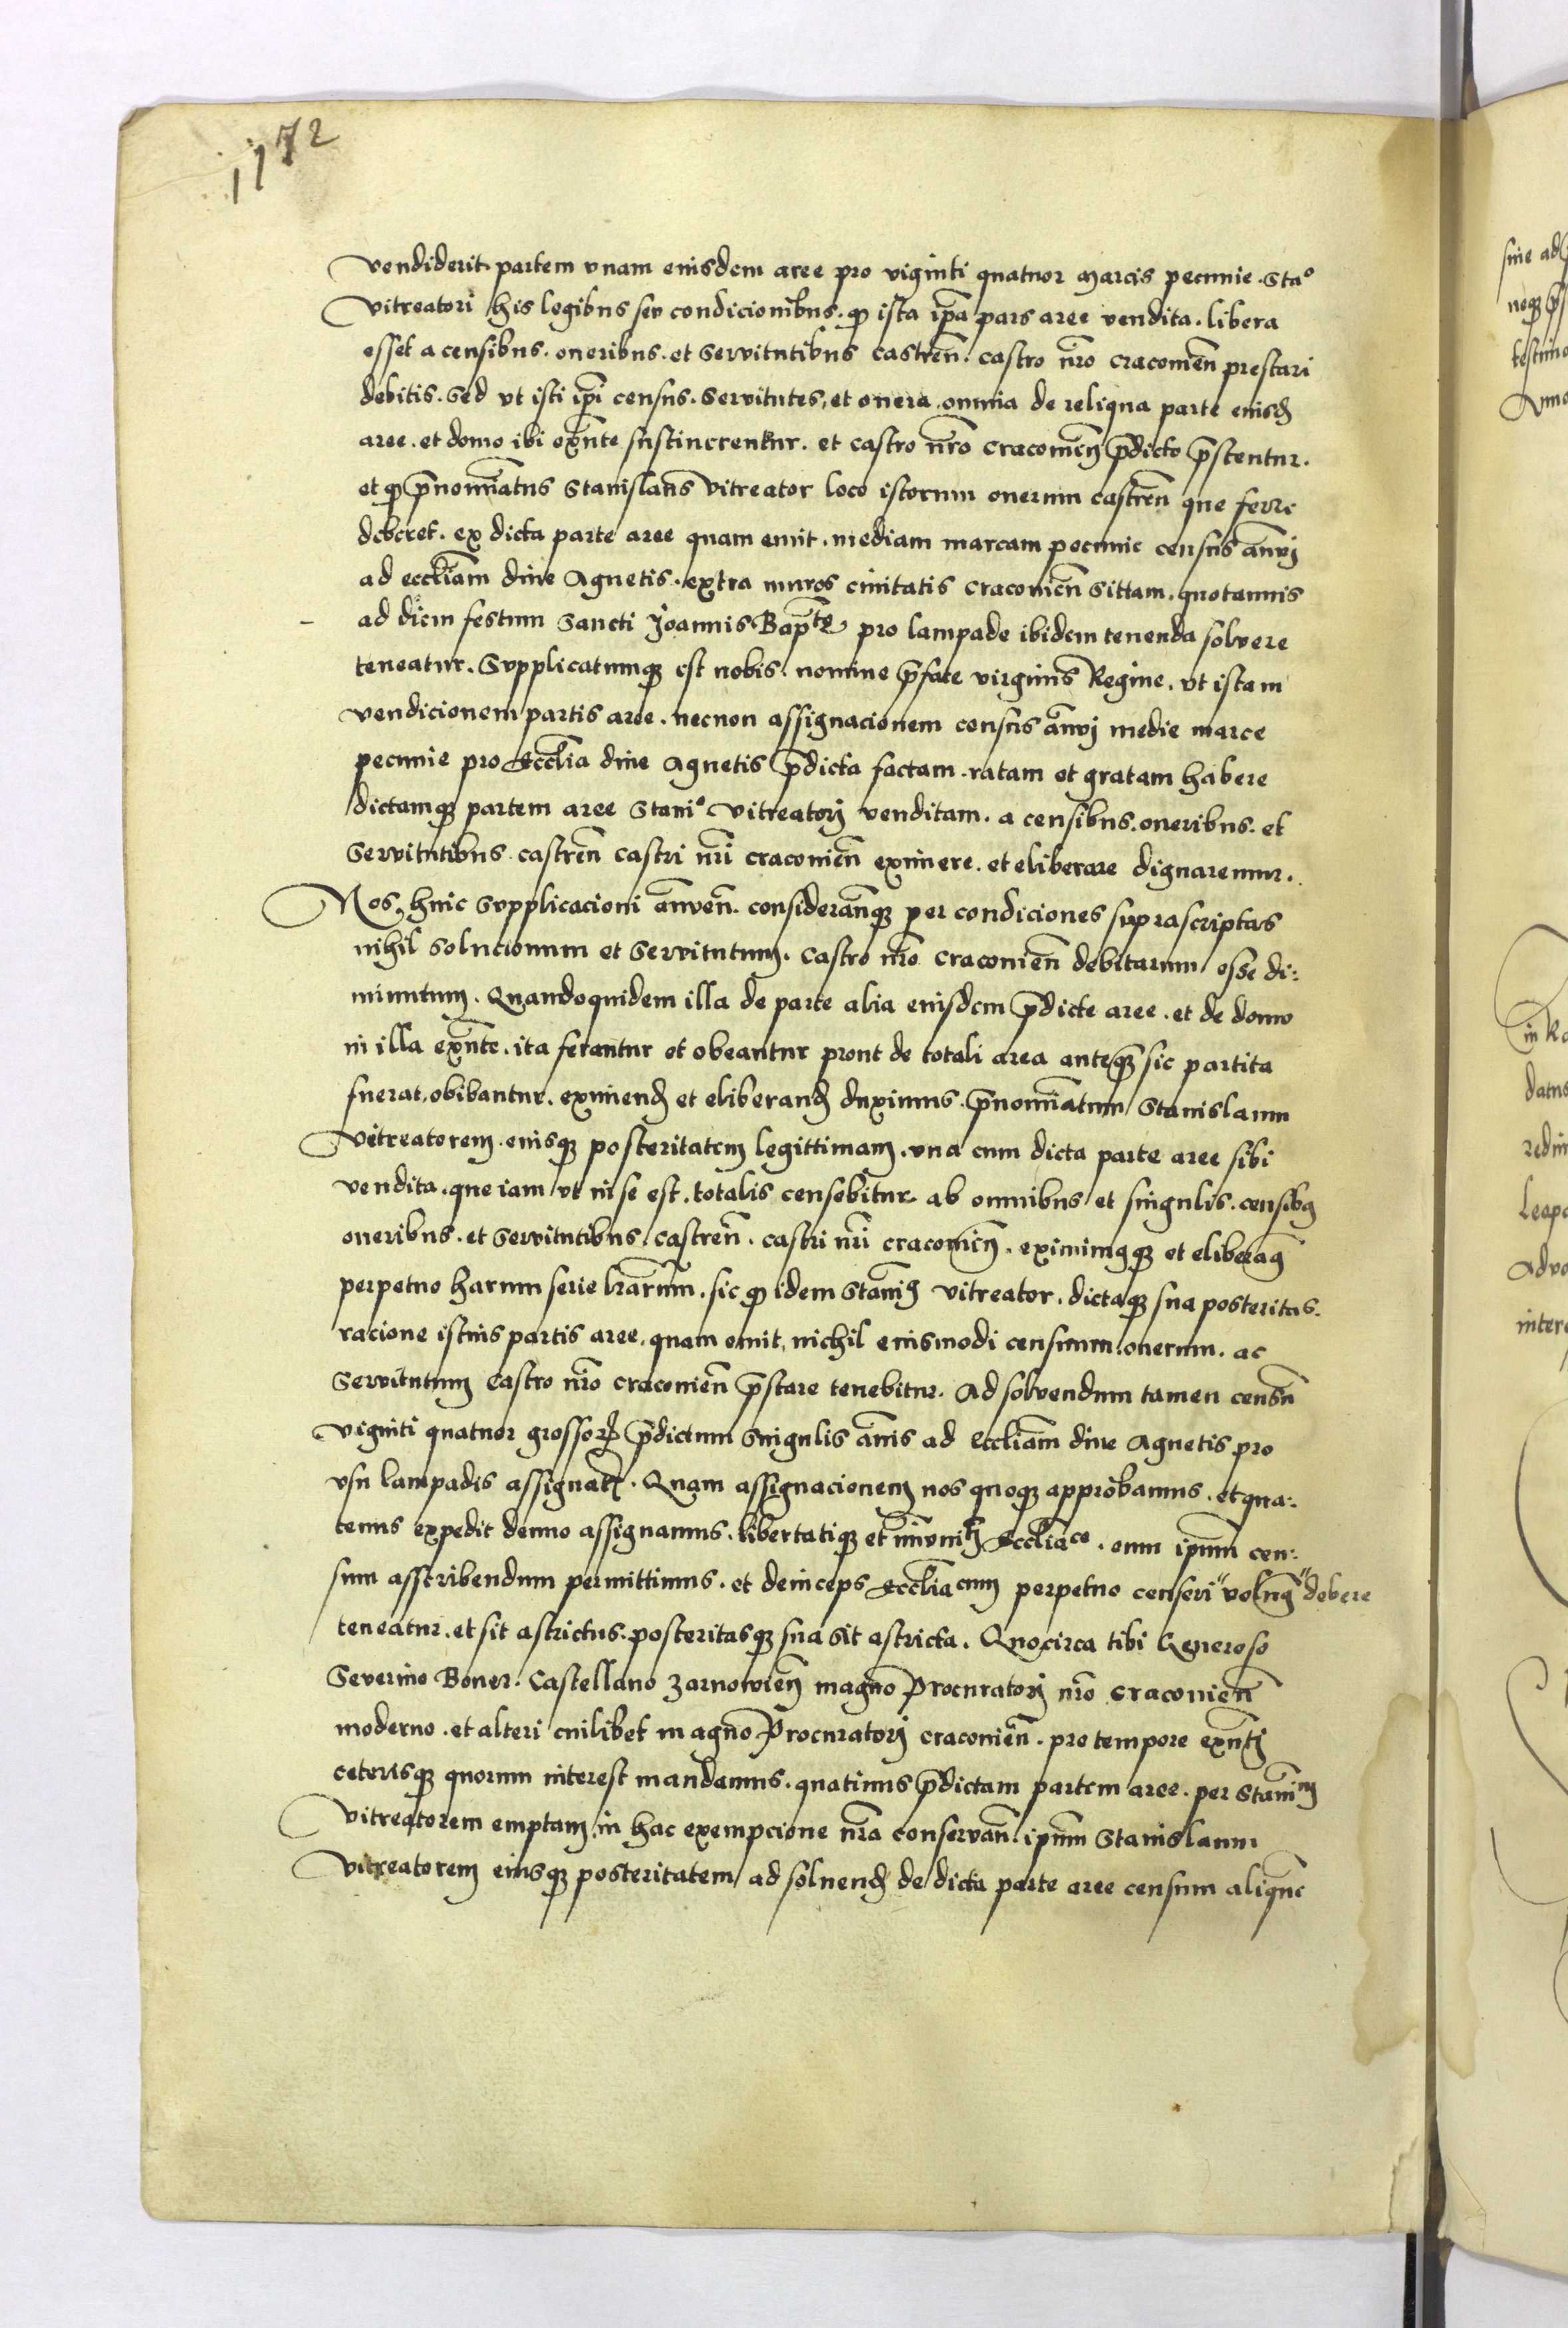 1172
vendiderit partem vnam eiusdem aree pro viginti quatuor marcis pecunie. Sta°
vitreatori his legibus seu condicionibus. qp ista ip̄a pars aree vendita. libera
esset a censibus. oneribus. et servitutibus castreñ. castro nr̄o cracovieñ prestari
debitis. Sed vt isti ip̄i census. Servitutes, et onera omnia de reliqua parte eiusđ
aree. et domo ibi exn̄te sustinerentur. et castro nr̄o cracovieñ p̄dicto p̄stentur.
et qp p̄nominatus Stanislaus vitreator loco istorum onerum castreñ que ferre
deberet. ex dicta parte aree quam emit. mediam marcam pecunie census an̄vj
ad eccl̄iam dive Agnetis. extra muros civitatis cracovieñ sittam. quotannis
ad diem festum Sancti Joannis Bap̄te pro lampade ibidem tenenda solvere
teneatur. Supplicatumqȝ est nobis. nomine p̄fate virginis Regine. vt istam
vendicionem partis aree. necnon assignacionem census an̄vj medie marce
pecunie pro Eccl̄ia dive Agnetis p̄dicta factam. ratam et gratam habere
dictamqȝ partem aree Stani° vitreatorj venditam. a censibus. oneribus. et
Servitutibus castreñ castri nr̄i cracovieñ eximere. et eliberare dignaremur.
Nos huic supplicacioni an̄ueñ. consideran̄tqȝ per condiciones suprascriptas
nihil solucionum et servitutum. Castro nr̄o cracovieñ debitarum esse di:
minutum. Quandoquidem illa de parte alia eiusdem p̄dicte aree. et de domo
in illa exn̄te. ita ferantur et obeantur prout de totali area anteqȝ sic partita
fuerat, obibantur. eximenđ et eliberanđ duximus. p̄nominatum Stanislaum
vitreatorem. eiusqȝ posteritatem legittimam. vna cum dicta parte aree sibi
vendita. que iam vt in se est. totalis censebitur ab omnibus et singulis. censibꝯ
oneribus. et servitutibus castreñ. castri nr̄i cracovieñ. eximimꝯqȝ et eliberamꝯ
perpetuo harum serie lr̄arum. sic qp idem Stanisꝯ vitreator. dictaqȝ sua posteritas.
racione istius partis aree. quam emit, nichil eiusmodi censuum onerum. ac
Servitutum Castro nr̄o cracovieñ p̄stare tenebitur. Ad solvendum tamen censū
viginti quatuor grossoꝝ p̄dictum singulis an̄nis ad Eccl̄iam dive Agnetis pro
vsu lampadis assignatꝭ. Quam assignacionem nos quoqȝ approbamus. et qua:
tenus expedit denuo assignamus. libertatiqȝ et im̄vnitꝭ Eccl̄iace. eum ip̄um cen:
sum asscribendum permittimus. et deinceps Eccl̄iacum perpetuo censeri "volumꝯ" debere
teneatur. et sit astrictus. posteritasqȝ sua sit astricta. Quocirca tibi Generoso
Severino Boner. Castellano Zarnovieñ magno Procuratorj nr̄o cracovieñ
moderno. et alteri cuilibet magno Procuratorj cracovieñ. pro tempore exn̄tj
ceterisqȝ quorum interest mandamus. quatinus p̄dictam partem aree. per Stanīm
vitreatorem emptam in hac exempcione nr̄a conservan̄. ip̄um Stanislaum
vitreatorem eiusqȝ posteritatem ad solvenđ de dicta parte aree censum aliquē